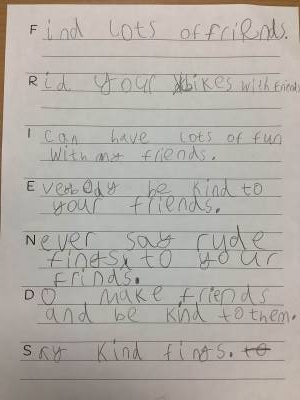 Find lots of friends.
Rid your bikes with friends
I can have lots of fun
with my friends.
Everbody be kind to
your friends.
Never say ryde
fings to your
frinds.
DO make friends
and be kind to them.
Say kind fings. to